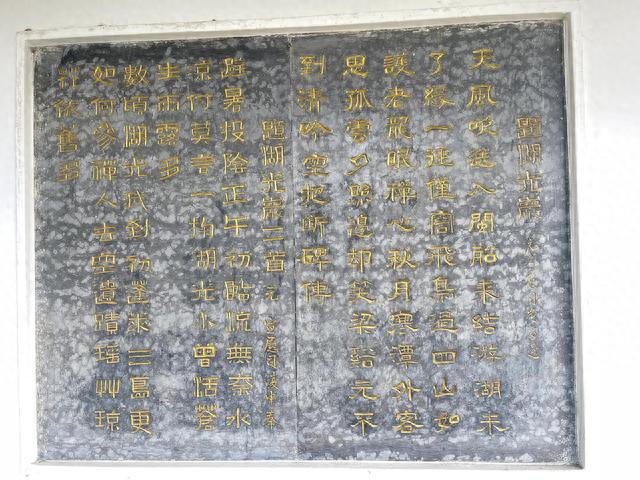 題湖光巖 元
天風喚送入閩船來結游湖未
了緣一徑僅容飛鳥過四山如
護老龍眠禪心秋月寒潭外客
思孤雲夕照邊却笑梁谿元不
到清吟空把斷碑傳
題湖光巖二首 元 宣慰司
避暑投陰正午初臨流無奈水
涼何莫言一掬湖光小曾活蒼
生雨露多
數頃湖光我到初蓬萊三島更
如何參禪人去空遺蹟瑤艸琼
花依舊多